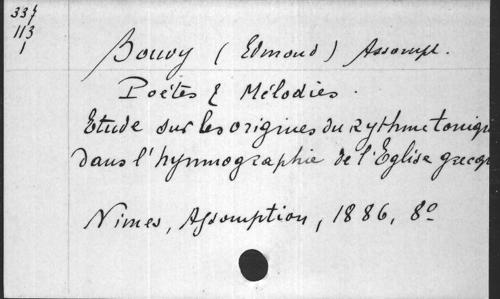 337
113
1
Bouvy (Edmond) Assompt.
Poètes & Mélodies.
Etude sur les origines du rythme toniqu
dans l'hymnographie de l'Eglise grecq
Nimes, Assomption, 1886, 8º